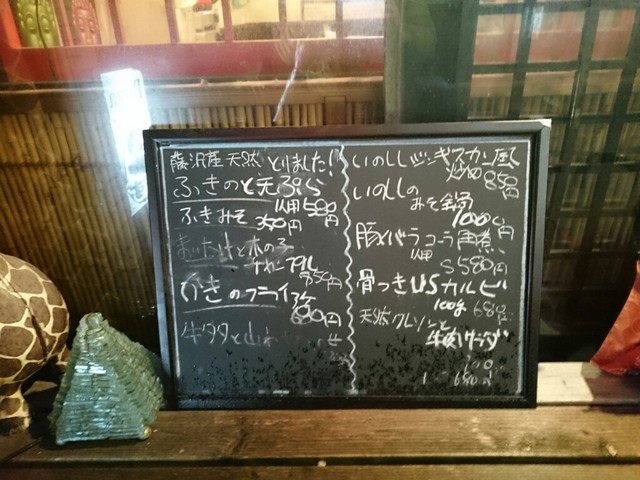 藤沢産 天然 とりました!
ふきのと天ぷら
1人用 500円
ふきみそ
350円
木の子
850円
かきのフライ
880円
牛タタ
いのししジンギスカン風
炒め 850円
いのししの
みそ鍋
1000円
豚バラコーラ角煮
1人用
S 580円
骨つきUSカルビ
100g 680円
天然クレソンと
牛肉サラダ
680円